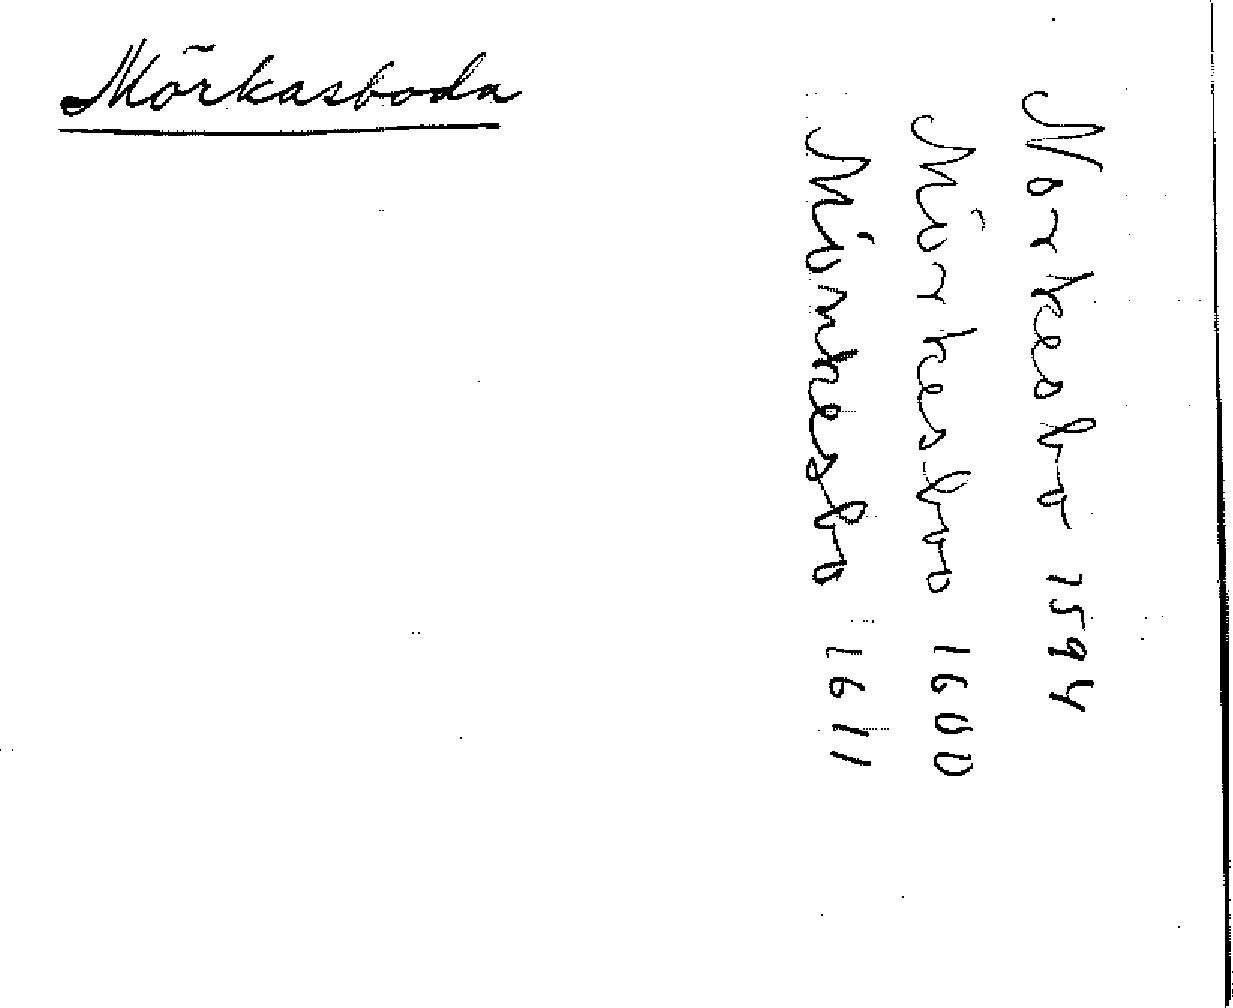 Mörkasboda
Norkesbo 1594
Mörkesboo 1600
Mómkesbo 1611